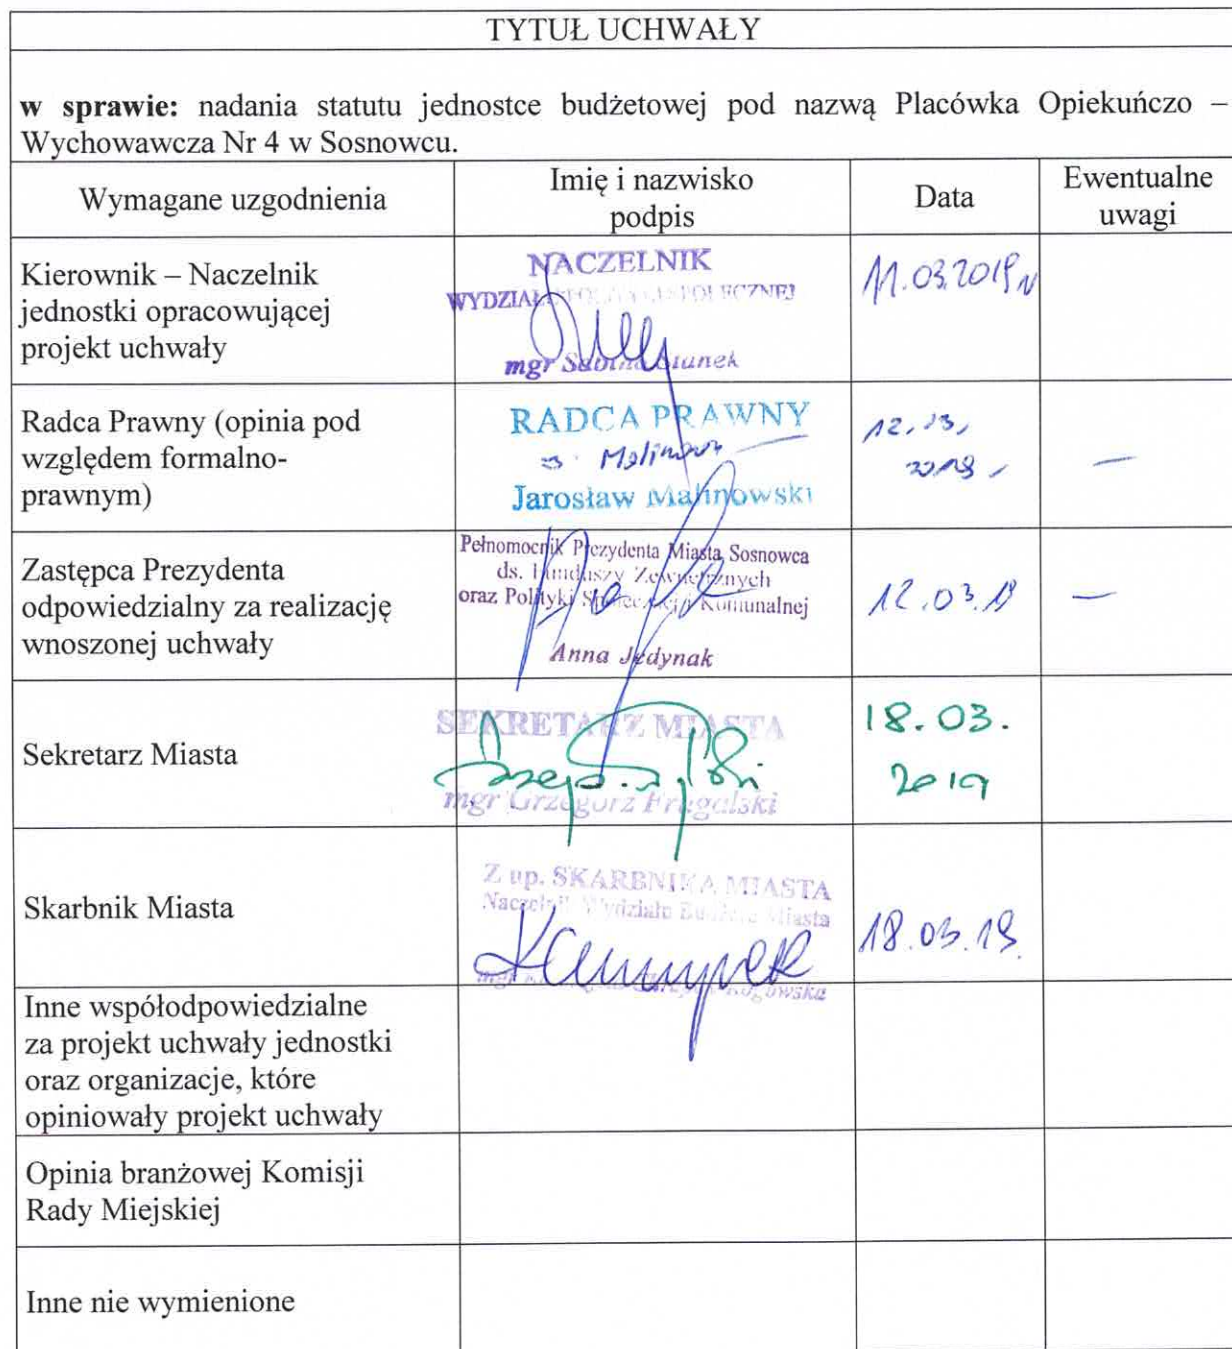 TYTUŁ UCHWAŁY
w sprawie: nadania statutu jednostce budżetowej pod nazwą Placówka Opiekuńczo –
Wychowawcza Nr 4 w Sosnowcu.
Wymagane uzgodnienia
Imię i nazwisko
podpis
Data
Ewentualne
uwagi
Kierownik – Naczelnik
jednostki opracowującej
projekt uchwały
NACZELNIK
WYDZIAŁU POLITYKI SPOŁECZNEJ
mgr Sabina Stanek
11.03.2019 r
Radca Prawny (opinia pod
względem formalno-
prawnym)
RADCA PRAWNY
Jarosław Malinowski
12.03.
2019
–
Zastępca Prezydenta
odpowiedzialny za realizację
wnoszonej uchwały
Pełnomocnik Prezydenta Miasta Sosnowca
ds. Funduszy Zewnętrznych
oraz Polityki Społecznej i Komunalnej
Anna Jedynak
12.03.19
–
Sekretarz Miasta
SEKRETARZ MIASTA
mgr Grzegorz Frugalski
18.03.
2019
Skarbnik Miasta
Z up. SKARBNIKA MIASTA
Naczelnik Wydziału Budżetu Miasta
mgr
18.03.19.
Inne współodpowiedzialne
za projekt uchwały jednostki
oraz organizacje, które
opiniowały projekt uchwały
Opinia branżowej Komisji
Rady Miejskiej
Inne nie wymienione